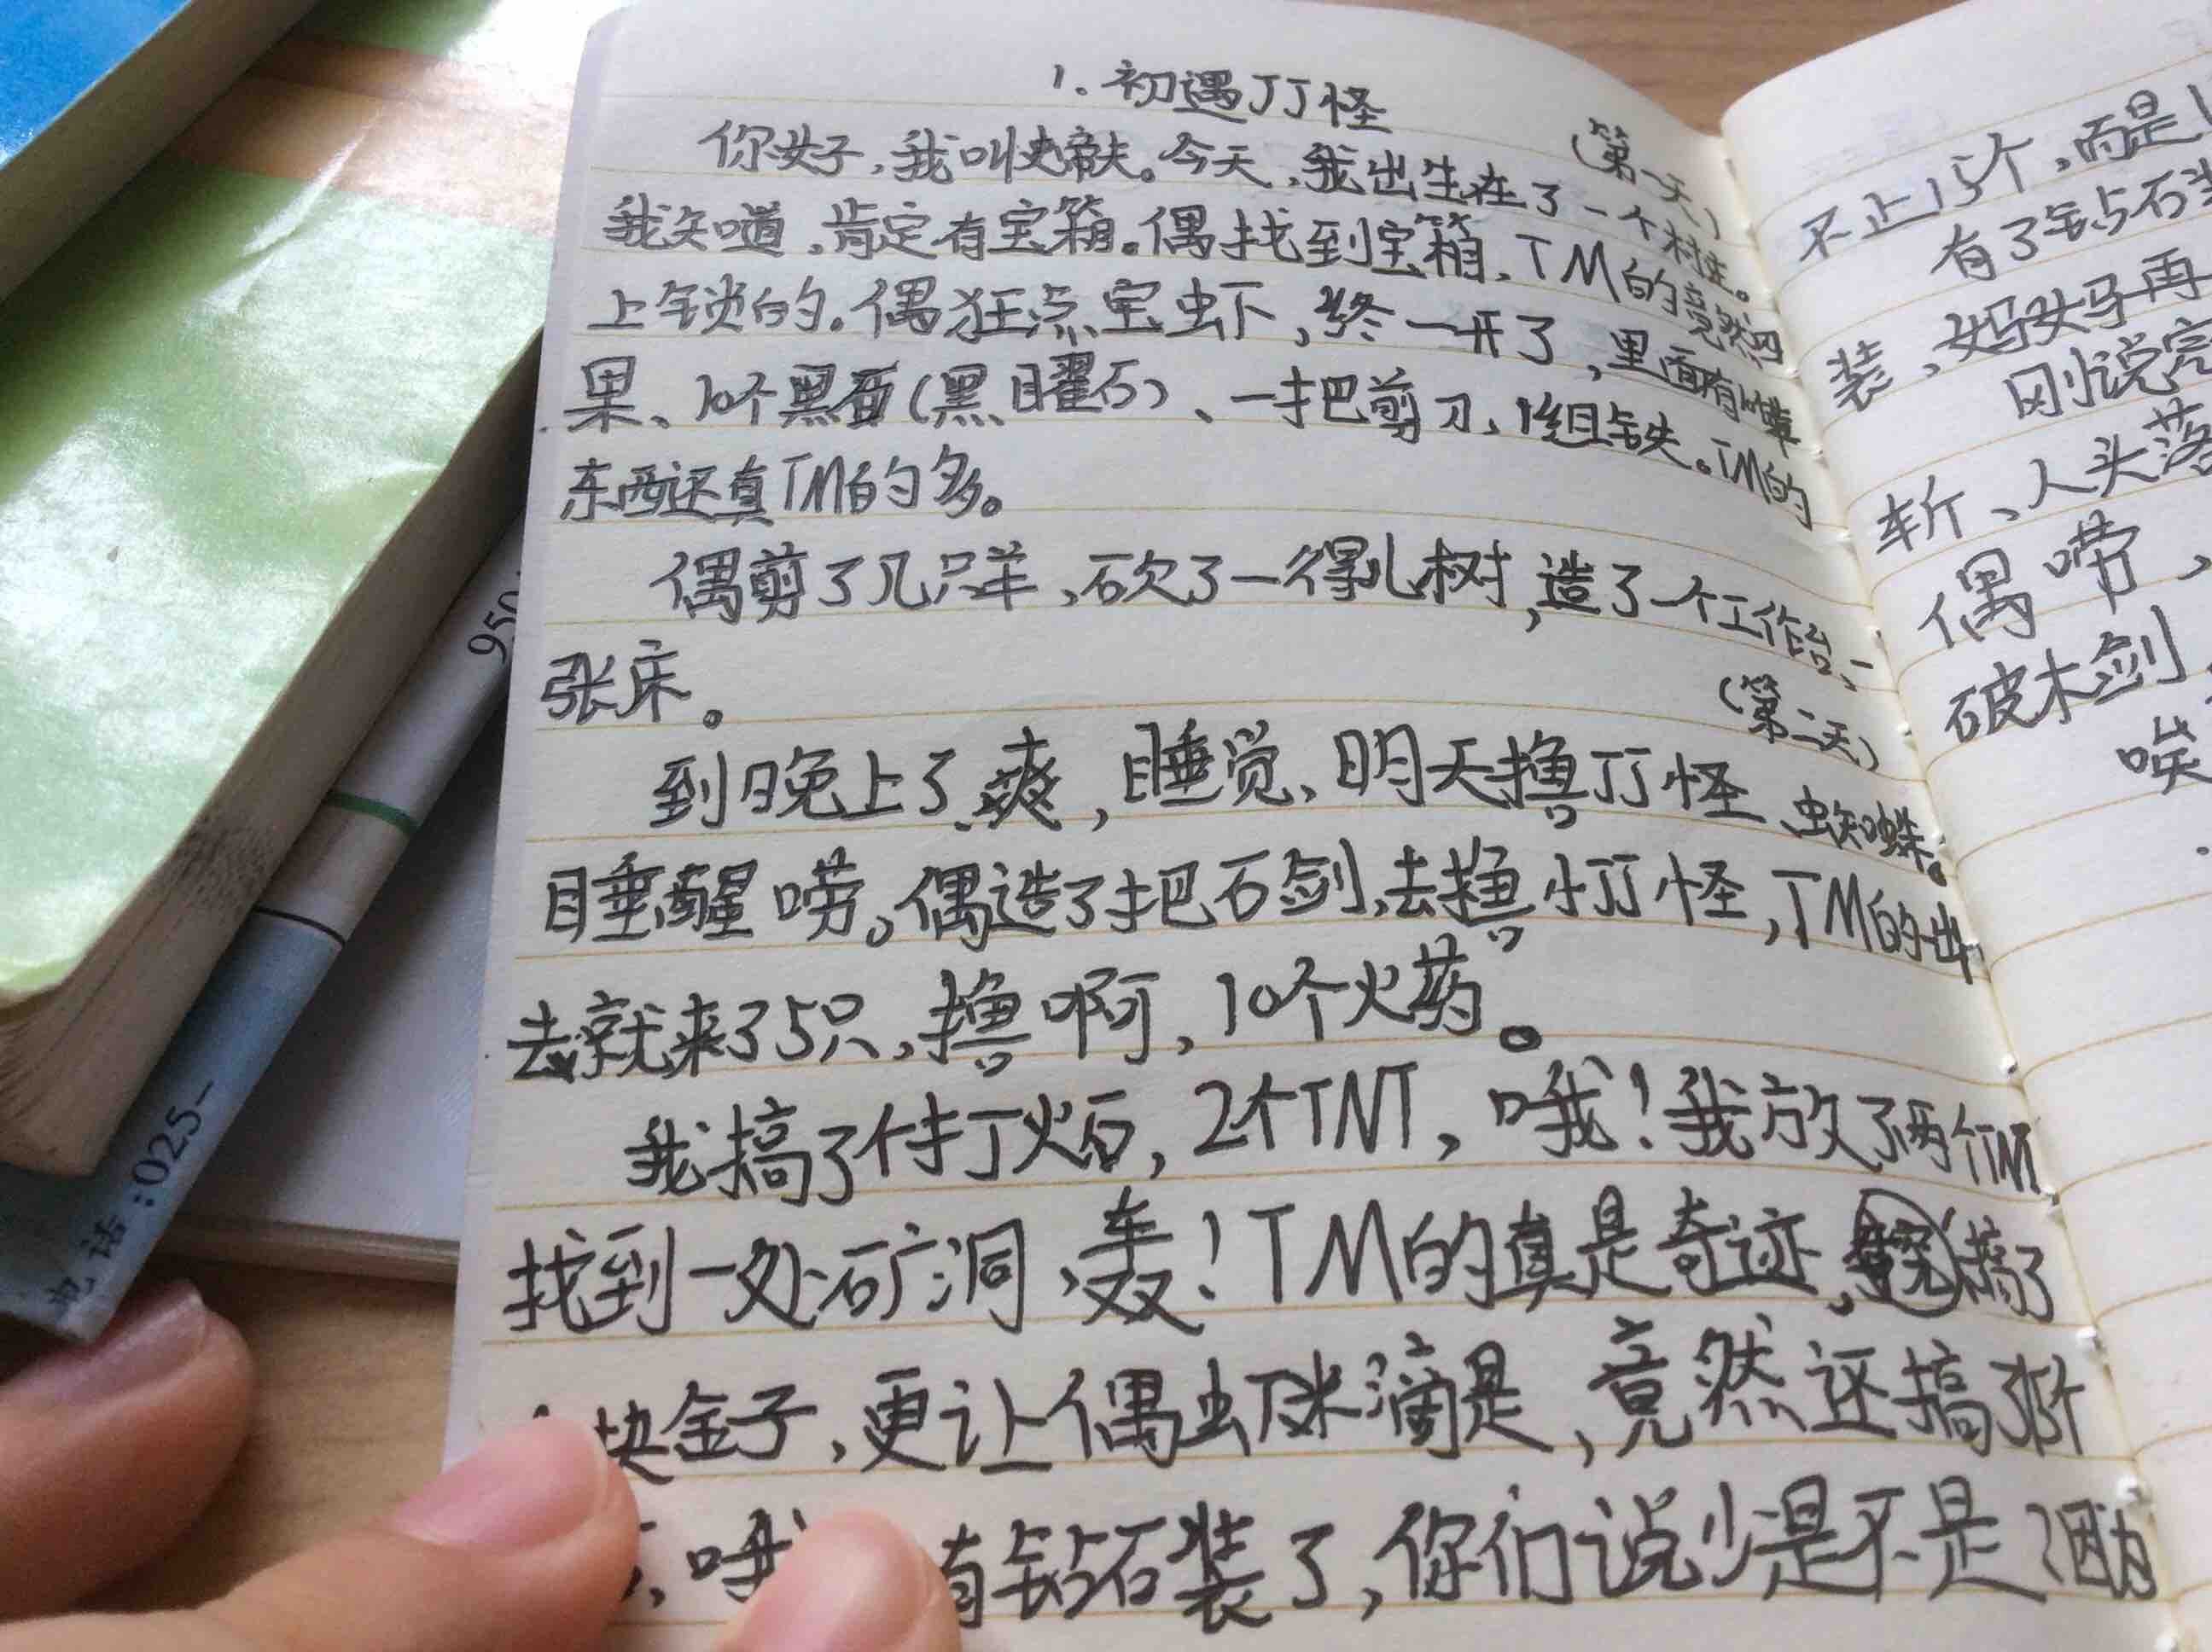 1. 初遇JJ怪
(第一天)
你好,我叫史蒂夫。今天,我出生在了一个村庄。
我知道,肯定有宝箱。偶找到宝箱,TM的竟然
上锁的。偶狂点宝虾,终一开了,里面有
果、10个黑面(黑曜石)、一把剪刀、1组铁。TM的
东西还真TM的多。
偶剪了几只羊,砍了一得儿树,造了一个工作台,一
张床。
(第二天)
到晚上了,爽,睡觉,明天撸JJ怪、蜘蛛。
睡醒唠。偶造了把石剑,去撸小JJ怪,TM的出
去就来了5只,撸啊,10个火药。
我搞了个打火石,2个TNT,哦!我放了两个TNT,
找到一处矿洞,轰!TM的真是奇迹,搞了
块金子,更让偶虾米滴是,竟然还搞
,哦 有钻石装了,你们说少是不是
不止15个,而是
有了钻石装
装,妈妈再
刚说完
斩、人头落
偶唠,
破木剑
唉
950
电话:025-